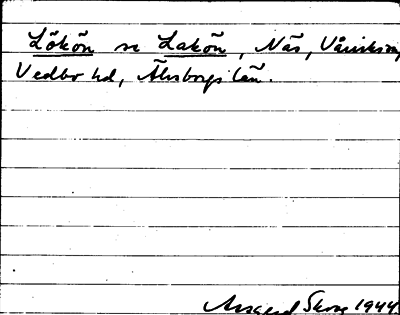 Lökön se Lakön, Näs, Vårviks sn,
Vedbo hd, Älvsborgs län.
Assar Skog 1944